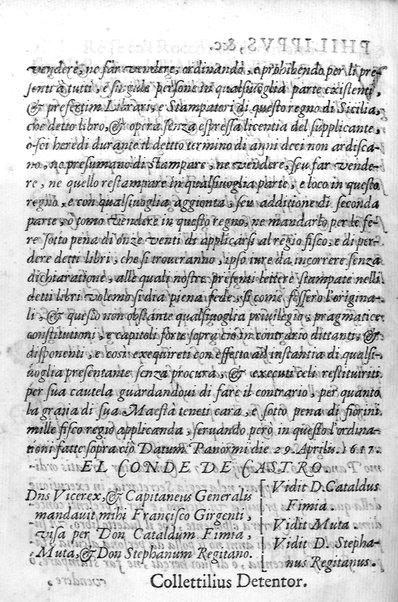 vendere, ne far vendere, ordinando, e prohibendo per li pre
senti à tutti, e singule persone in qualsivoglia parte existenti,
& presertim Librari, e Stampatori di questo regno di Sicilia,
che detto libro, & opera senza espressa licentia del supplicante,
ò soi heredi durante il detto termino di anni deci non ardisca-
no, ne presumano di Stampare, ne vendere, seu far vende-
re, ne quello restampare in qualsivoglia parte, e loco in questo
regno, e con qualsivoglia aggionta, seu additione di seconda
parte, ò tomo vendere in questo regno, ne mandarlo per te fe-
re sotto pena di onze venti di applicarsi al regio fisco, e di per-
dere detti libri, che si troveranno, ipso iure da incorrere senza
dichiaratione, alle quali nostre presenti lettere stampate nelli
detti libri volemo si dia piena fede, si come fossero l'origina-
li, & questo non obstante qualsivoglia privilegio, pragmatice
constitutioni, e capitoli forte sopra ciò in contrario dittanti, &
disponenti, e cosi exequireti con effetto ad instantia di quals-
ivoglia presentante senza procura, & executi celi restituiriti
per sua cautela guardandovi di fare il contrario, per quanto
la gratia di sua Maestà teneti cara, e sotto pena di fiorini
mille fisco regio applicanda, servando però in questo l'ordina-
tioni fatte sopra ciò Datum Panormi die 29. Aprilis. 1617.
EL CONDE DE CASTRO.
Dns Vicerex, & Capitaneus Generalis
mandavit mihi Francisco Girgenti,
visa per Don Cataldum Fimia,
Muta, & Don Stephanum Regitano.
Vidit D. Cataldus
Fimia.
Vidit Muta.
Vidit D. Stepha-
nus Regitanus.
Collettilius Detentor.